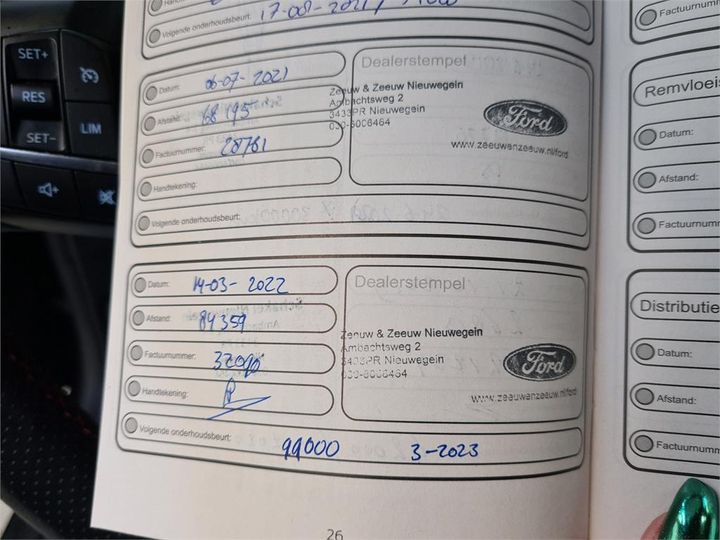 SET+
RES
SET-
LIM
Volgende onderhoudsbeurt:
Factuurnummer
Datum: 06-07-2021
Afstand: 68195
Factuurnummer: 28761
Handtekening:
Volgende onderhoudsbeurt:
Dealerstempel
Zeeuw & Zeeuw Nieuwegein
Ambachtsweg 2
3433PR Nieuwegein
030-6006464
Ford
www.zeeuwenzeeuw.nl/ford
Datum: 14-03-2022
Afstand: 84359
Factuurnummer:
Handtekening:
Volgende onderhoudsbeurt: 99000 3-2023
Dealerstempel
Zeeuw & Zeeuw Nieuwegein
Ambachtsweg 2
3433PR Nieuwegein
030-6006464
Ford
www.zeeuwenzeeuw.nl/ford
Remvloeis
Datum:
Afstand:
Factuurnumm
Distributie
Datum:
Afstand:
Factuurnumm
26